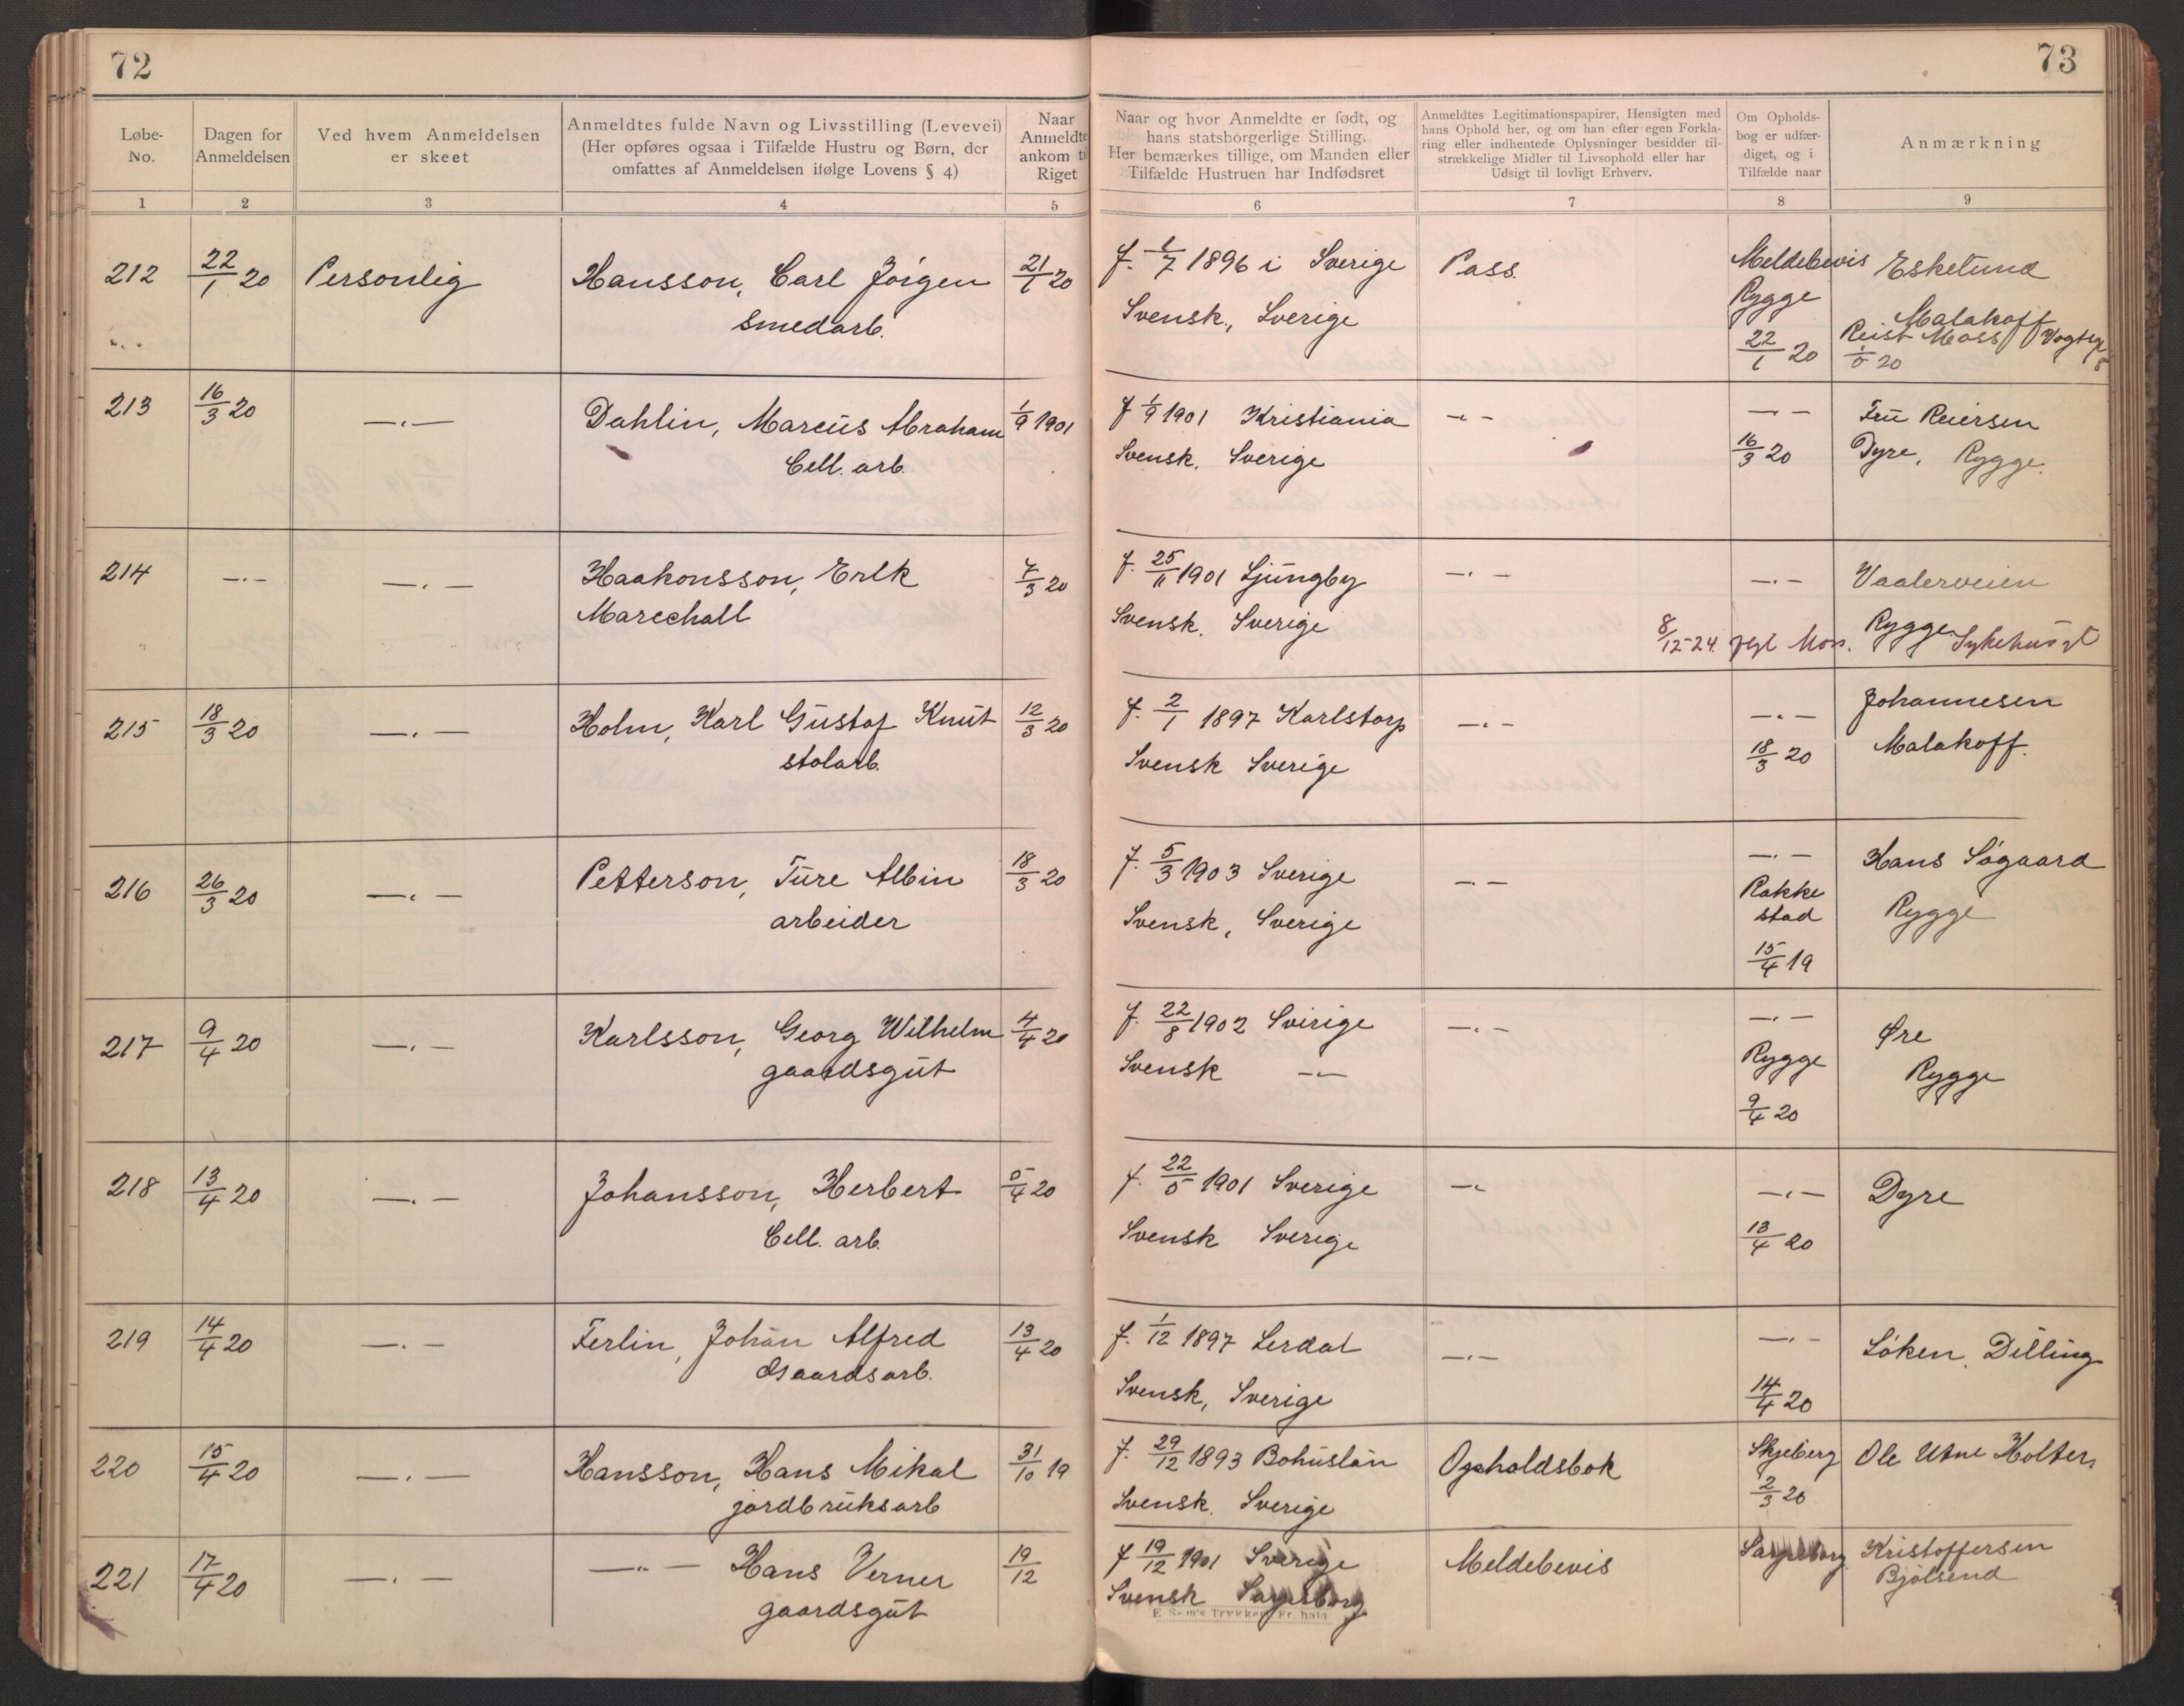 72
73
Løbe-
No.
Dagen for
Anmeldelsen
Ved hvem Anmeldelsen
er skeet
Anmeldtes fulde Navn og Livsstilling (Levevei)
(Her opføres ogsaa i Tilfælde Hustru og Børn, der
omfattes af Anmeldelsen ifølge Lovens § 4)
Naar
Anmeldte
ankom til
Riget
Naar og hvor Anmeldte er født, og
hans statsborgerlige Stilling.
Her bemærkes tillige, om Manden eller
Tilfælde Hustruen har Indfødsret
Anmeldtes Legitimationspapirer, Hensigten med
hans Ophold her, og om han efter egen Forkla-
ring eller indhentede Oplysninger besidder til-
strækkelige Midler til Livsophold eller har
Udsigt til lovligt Erhverv.
Om Opholds-
bog er udfær-
diget, og i
Tilfælde naar
Anmærkning
1 2 3 4 5 6 7 8 9
212 22/1 20 Personlig Hansson, Carl Jörgen 21/1 20 f. 1/7 1896 i Sverige Pass. Meldebevis Eskelund
smedarb. Svensk, Sverige Rygge Malakoff
22/1 20 Reist Moss Vogtsgt 8
1/5 20
213 16/3 20 —.— Dahlin, Marcus Abraham 1/9 1901 f 1/9 1901 Kristiania —.— —.— Fru Reiersen
Cell. arb. Svensk. Sverige 16/3 20 Dyre, Rygge.
214 —.— —.— Haakonsson, Erik 7/3 20 f. 25/11 1901 Ljungby —.— —.— Vaalerveien
Marechall Svensk. Sverige Rygge.
8/12-24. Moss. Sykehusgt
215 18/3 20 —.— Holm, Karl Gustaf Knut 12/3 20 f. 2/1 1897 Karlstorp —.— —.— Johannesen
stolarb. Svensk Sverige 18/3 20 Malakoff.
216 26/3 20 —.— Petterson, Ture Albin 18/3 20 f. 5/3 1903 Sverige —.— —.— Hans Søgaard
arbeider Svensk, Sverige Rakke
stad Rygge
15/4 19
217 9/4 20 —.— Karlsson, Georg Wilhelm 4/4 20 f. 22/8 1902 Sverige —.— —.— Øre
gaardsgut Svensk —.— Rygge Rygge
9/4 20
218 13/4 20 —.— Johansson, Herbert 5/4 20 f. 22/5 1901 Sverige —.— —.— Dyre
Cell. arb. Svensk Sverige 13/4 20
219 14/4 20 —.— Ferlin, Johan Alfred 13/4 20 f. 1/12 1897 Lerdal —.— —.— Løken, Dilling
Gaardsarb. Svensk, Sverige 14/4 20
220 15/4 20 —.— Hansson, Hans Mikal 31/10 19 f. 29/12 1893 Bohuslän Opholdsbok Skjeberg Ole Utne Holter
jordbruksarb Svensk. Sverige 2/3 20
221 17/4 20 —.— —"— Hans Verner 19/12 f 19/12 1901 Sverige Meldebevis Sarpsborg Kristoffersen
gaardsgut Svensk Sarpsborg Bjölsend
E Sem's Trykkeri Fr.hald